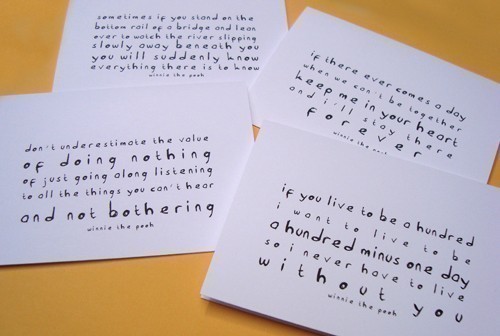 sometimes if you stand on the
bottom rail of a bridge and lean
over to watch the river slipping
slowly away beneath you
you will suddenly know
everything there is to know
winnie the pooh
if there ever comes a day
when we can't be together
keep me in your heart
and i'll stay there
forever
winnie the
don't underestimate the value
of doing nothing
of just going along listening
to all the things you can't hear
and not bothering
winnie the pooh
if you live to be a hundred
i want to live to be
a hundred minus one day
so i never have to live
without you
winnie the pooh